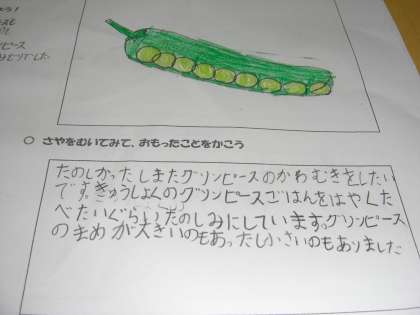 よう！
ピース
○ さやをむいてみて、おもったことをかこう
たのしかったしまたグリンピースのかわむきをしたい
です。きゅうしょくのグリンピースごはんをはやくた
べたいぐらいたのしみにしています。グリンピース
のまめが大きいのもあったし小さいのもありました